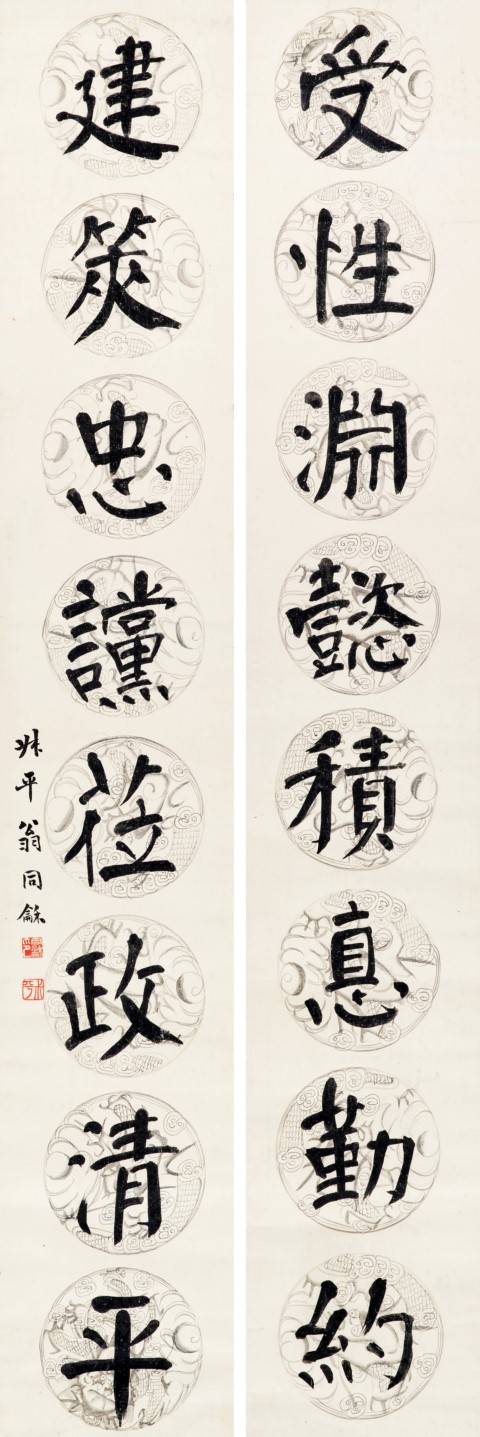 受性淵懿積悳勤約
建筴忠讜莅政清平
叔平翁同龢